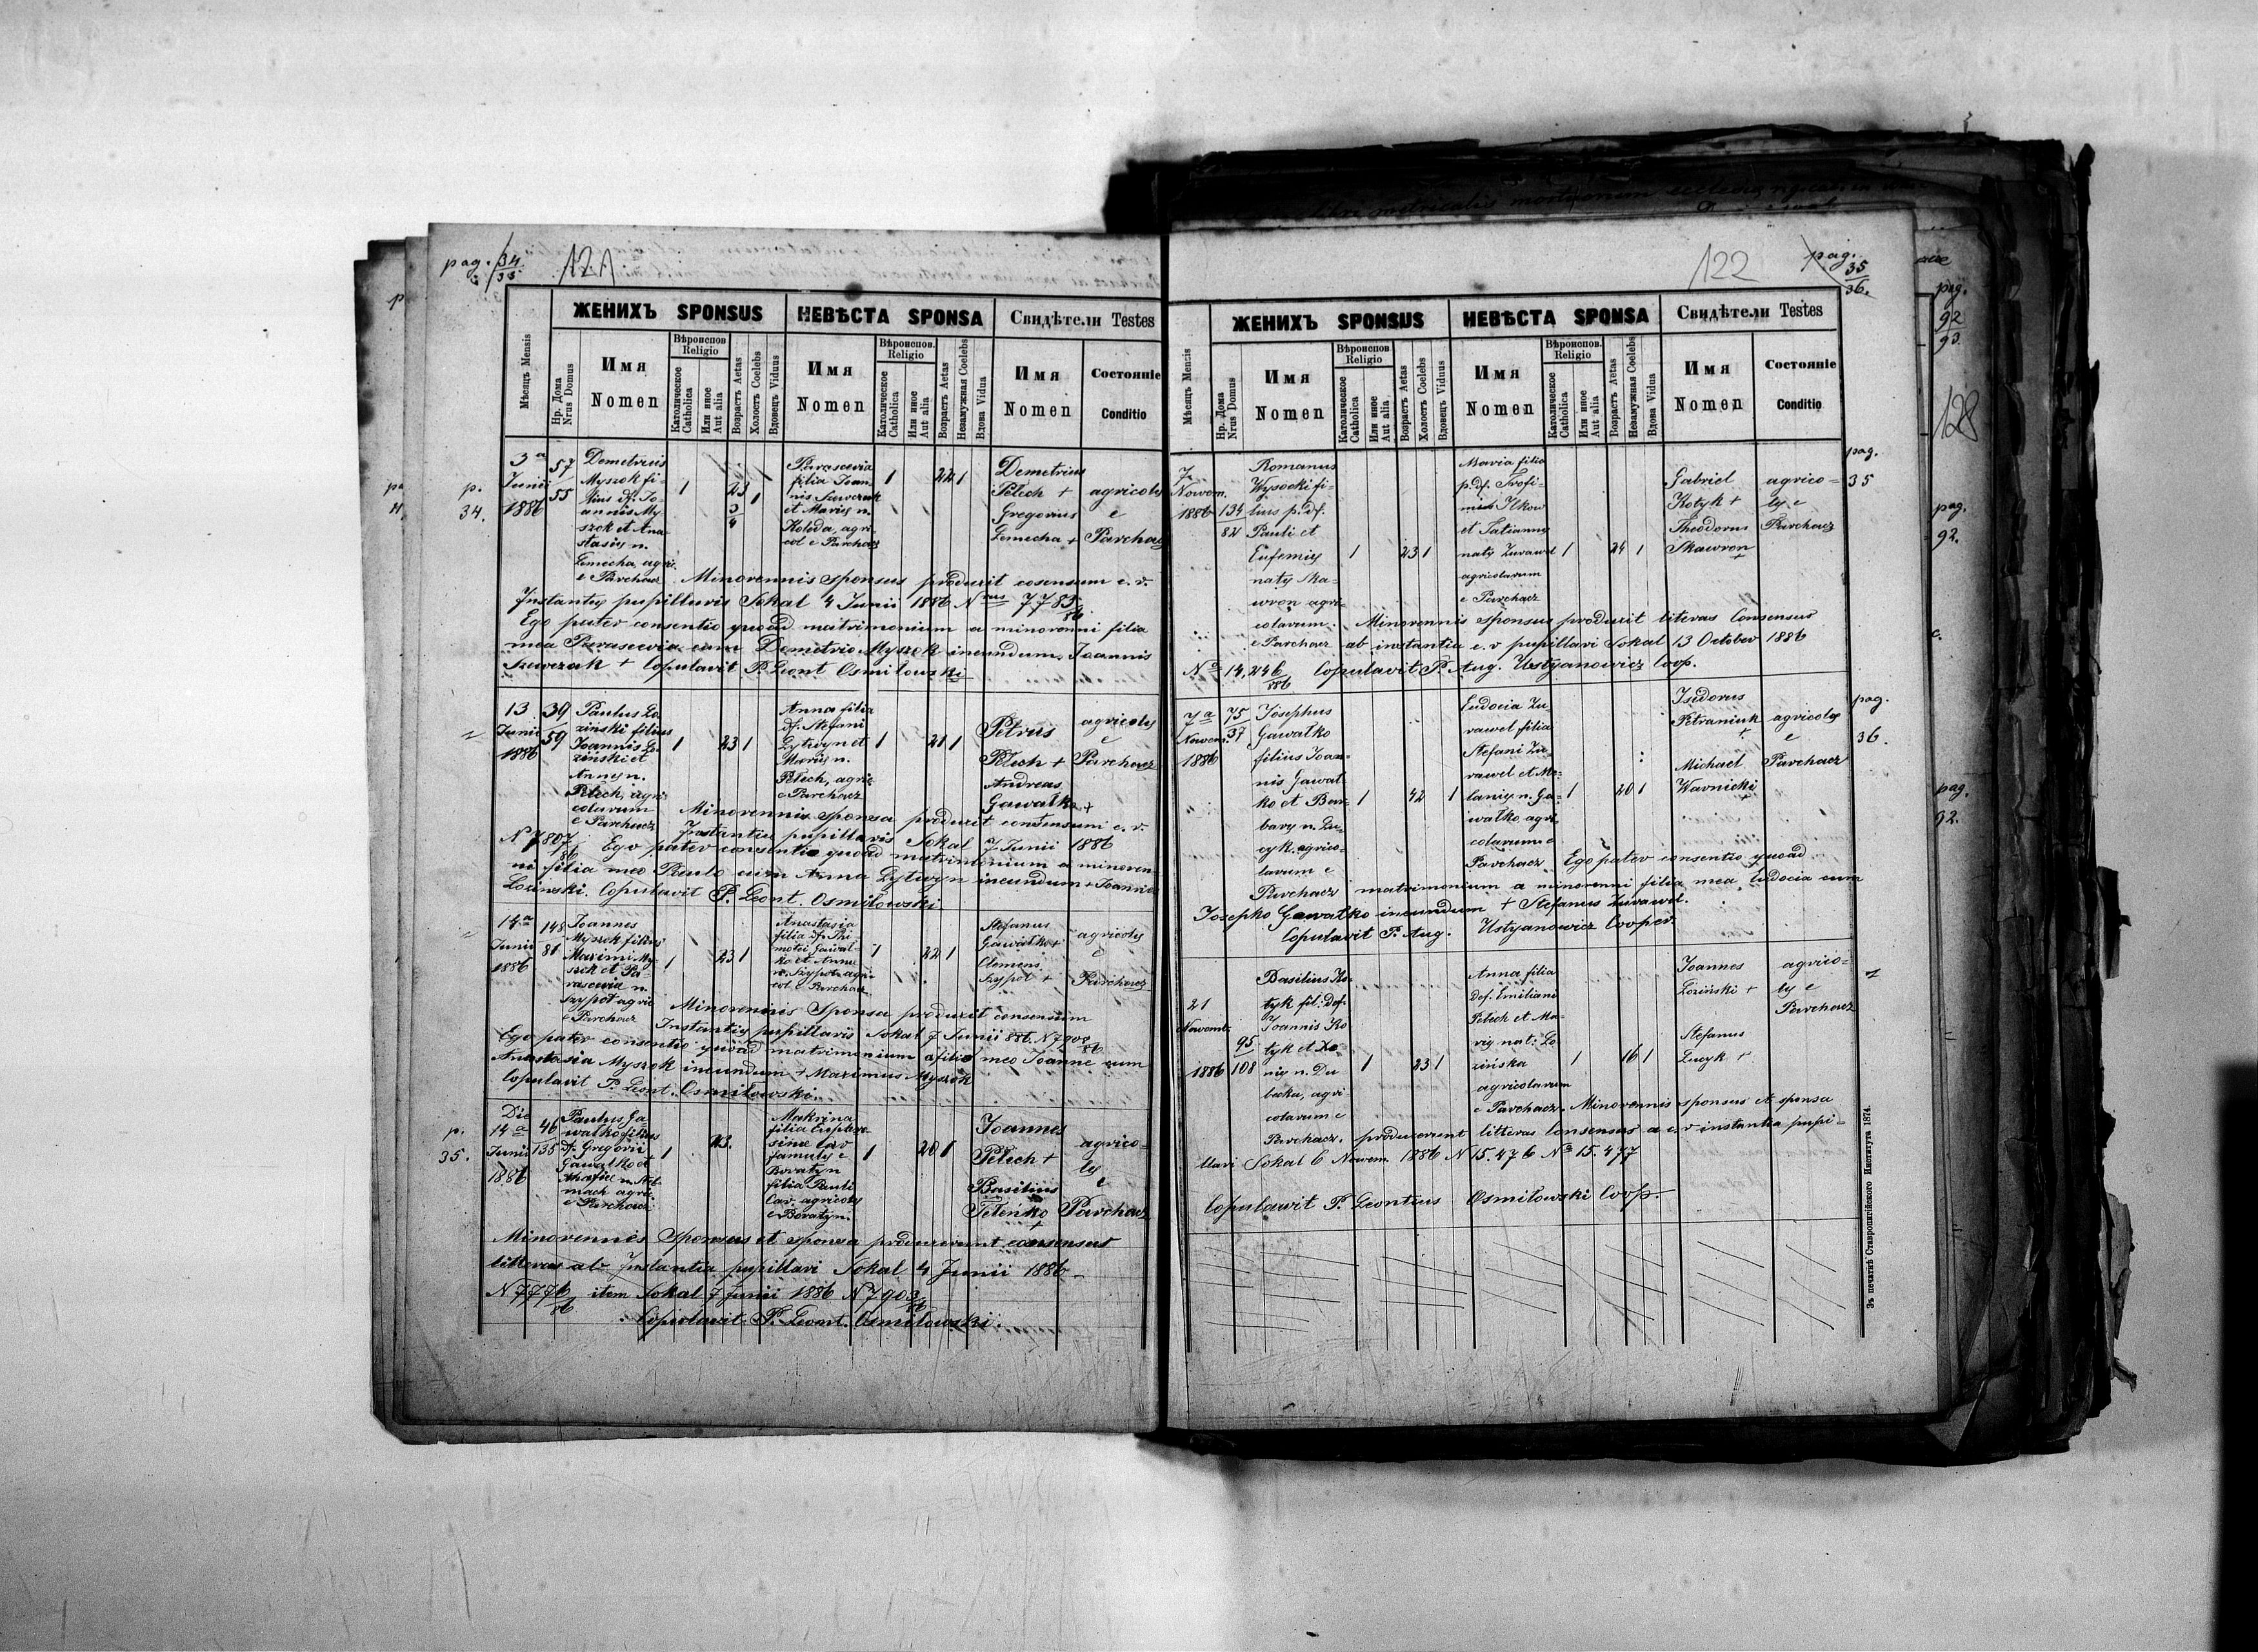 pag. 34/35
121
ЖЕНИХЪ SPONSUS
НЕВѢСТА SPONSA
Свидѣтели Testes
Мѣсяцъ Mensis
Нр. Дома
Nrus Domus
Имя
Nomen
Вѣроиспов.
Religio
Католическое
Catholica
Или иное
Aut alia
Возрастъ Aetas
Холостъ Coelebs
Вдовецъ Viduus
Имя
Nomen
Вѣроиспов.
Religio
Католическое
Catholica
Или иное
Aut alia
Возрастъ Aetas
Незамужная Coelebs
Вдова Vidua
Имя
Nomen
Состояніе
Conditio
p.
34.
3a
Junii
1886
57
55
Demetrius
Myszok fi-
lius df. Jo-
annis My-
szok et Ana-
stasiy n.
Lemecha, agri.
e Parchacz
1
23
3/4
1
Parascevia
filia Joan-
nis Szewczuk
et Mariy n.
Koloda, agri-
col e Parchacz
1
22 1
Demetrius
Pelech +
Gregorius
Lemecha +
agricoly
e
Parchacz
Minorennis sponsus produxit cosensum c. r.
Instantiy pupillaris Sokal 4 Junii 1886 Nrus 7783/86
Ego pater consentio quoad matrimonium a minorenni filia
mea Parascevia cum Demetrio Myszok ineundum. Joannis
Szewczuk + Copulavit P. Leont Osmilowski
13
Junii
1886
39
59
Paulus Lo-
zinski filius
Joannis Lo-
zinski et
Anny n.
Pelech, agri-
colarum
e Parchacz
1
23 1
Anna filia
df. Stefani
Lytwyn et
Mariy n.
Pelech, agric
e Parchacz
1
21 1
Petrus
Pelech +
Andreas
Gawalko +
agricoly
e
Parchacz
Minorennis sponsa produxit consensum c. r.
Instantiy pupillaris Sokal 7 Junii 1886
N 7807/86 Ego pater consentio quoad matrimonium a minoren
ni filio meo Paulo cum Anna Lytwyn ineundum + Joannis
Lozinski. Copulavit P. Leont. Osmilowski
14a
Junii
1886
148
81
Joannes
Myszok filius
Maximi My-
szok et Pa-
rasceviae n.
Szypot agric
e Parchacz
1
23 1
Anastasia
filia df. Thi
motei Gawal-
ko et Anna
n. Szypot agri-
col e Parchacz
1
22 1
Stefanus
Gawalko +
Clemens
Szypot +
agricoly
e
Parchacz
Minorennis Sponsa produxit consensum
Instantiy pupillaris Sokal 7 Junii 886. N 7902/86
Ego pater consentio quoad matrimonium a filio meo Joanne cum
Anastasia Myszok ineundum + Maximus Myszok
Copulavit P. Leont. Osmilowski.
p.
35.
Die
14a
Junii
1886
46
135
Paulus Ga-
walko filius
df. Gregorii
Gawalko et
e Parchacz
1
23.
Makrina
filia
famuly e
Boratyn
filia Pauli
Cav. agricoly
e Boratyn.
1
20 1
Joannes
Pelech +
Basilius
Telenko
+
agrico-
ly
e
Parchacz
Minorennes Sponsus et sponsa produxerunt consensus
litteras ab Instantia pupillari Sokal 4 Junii 1886
N 7776/86 item Sokal 7 Junii 1886 N 7903/86
Copulavit P. Leont. Osmilowski.
122
pag.
35/36.
ЖЕНИХЪ SPONSUS
НЕВѢСТА SPONSA
Свидѣтели Testes
Мѣсяцъ Mensis
Нр. Дома
Nrus Domus
Имя
Nomen
Вѣроиспов.
Religio
Католическое
Catholica
Или иное
Aut alia
Возрастъ Aetas
Холостъ Coelebs
Вдовецъ Viduus
Имя
Nomen
Вѣроиспов.
Religio
Католическое
Catholica
Или иное
Aut alia
Возрастъ Aetas
Незамужная Coelebs
Вдова Vidua
Имя
Nomen
Состояніе
Conditio
7
Novem.
1886
134
82
Romanus
Wysocki fi-
lius p. df.
Pauli et
Eufemiy
naty Ska-
wron agri-
colarum.
e Parchacz
1
23 1
Maria filia
p. df. Trofi-
mich Ilkow
et Tatianny
naty Zurawel
agricolarum
e Parchacz
1
24 1
Gabriel
Kotyk +
Theodorus
Skawron
+
agrico-
ly e
Parchacz
pag.
35
Minorennis sponsus produxit literas Consensus
ab instantia c. r pupillari Sokal 13 October 1886
No 14,246/886 Copulavit P. Aug. Ustyanowicz Coop.
7a
Novem.
1886
75
37
Josephus
Gawalko
filius Joan-
nis Gawal-
ko et Bar-
bary n. Lu-
cyk. agrico-
larum e
Parchacz
1
42 1
Eudocia Zu-
rawel filia
Stefani Zu-
rawel et Me-
laniy n. Ga-
walko agri-
colarum e
Parchacz
1
20 1
Isidorus
Petraniuk
+
Michael
Warnicki
agricoly
e
Parchacz
pag.
36.
Ego pater consentio quoad
matrimonium a minorenni filia mea Eudocia cum
Josepho Gawalko ineundum + Stefanus Zurawel.
Copulavit P. Aug. Ustyanowicz Cooper.
21
Novemb.
1886
95
108
Basilius Ko-
tyk fil: def.
Joannis Ko
tyk et Xe-
niy n. Du
becka, agri
colarum e
Parchacz.
1
23 1
Anna filia
def. Emiliani
Pelech et Ma-
riy nat: Lo
zińska
agricolarum
e Parchacz.
1
16 1
Joannes
Loziński +
Stefanus
Lucyk +
agrico-
ly e
Parchacz
Minorennis sponsus et sponsa
producerunt litteras Consensus a c. r instantia pupi-
llari Sokal 6 Novem. 1886 N 15.476 No 15.477
Copulavit P. Leontius Osmilowski Coop.
Зъ печатнѣ Ставропигійского Института 1874.
pag.
92
93
128
pag.
92.
pag.
92.